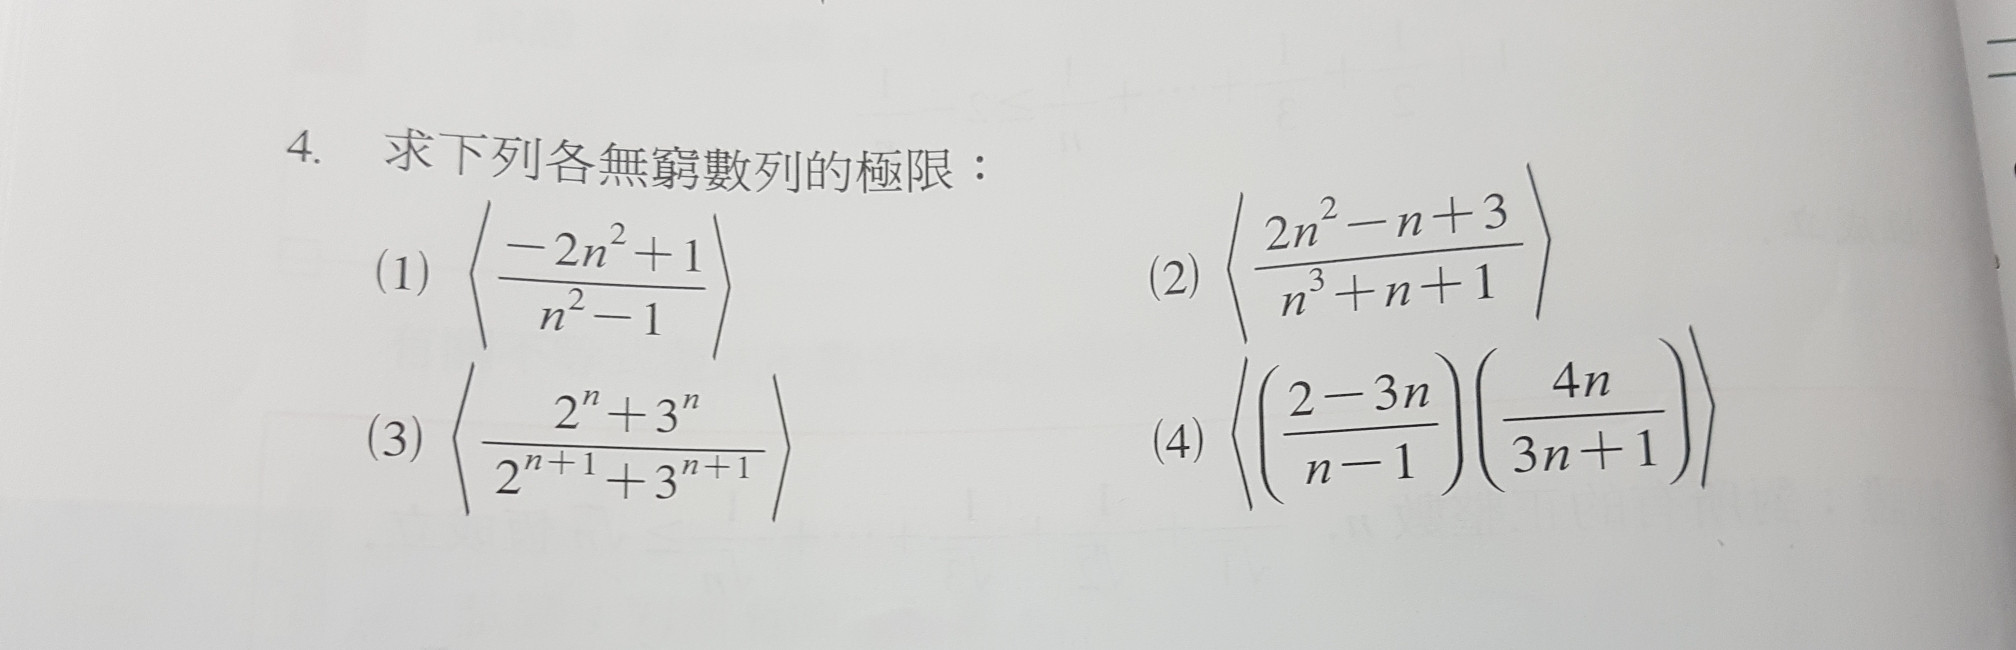 4. 求下列各無窮數列的極限：
(1) ⟨(−2n²+1)/(n²−1)⟩ (2) ⟨(2n²−n+3)/(n³+n+1)⟩
(3) ⟨(2ⁿ+3ⁿ)/(2ⁿ⁺¹+3ⁿ⁺¹)⟩ (4) ⟨((2−3n)/(n−1))(4n/(3n+1))⟩